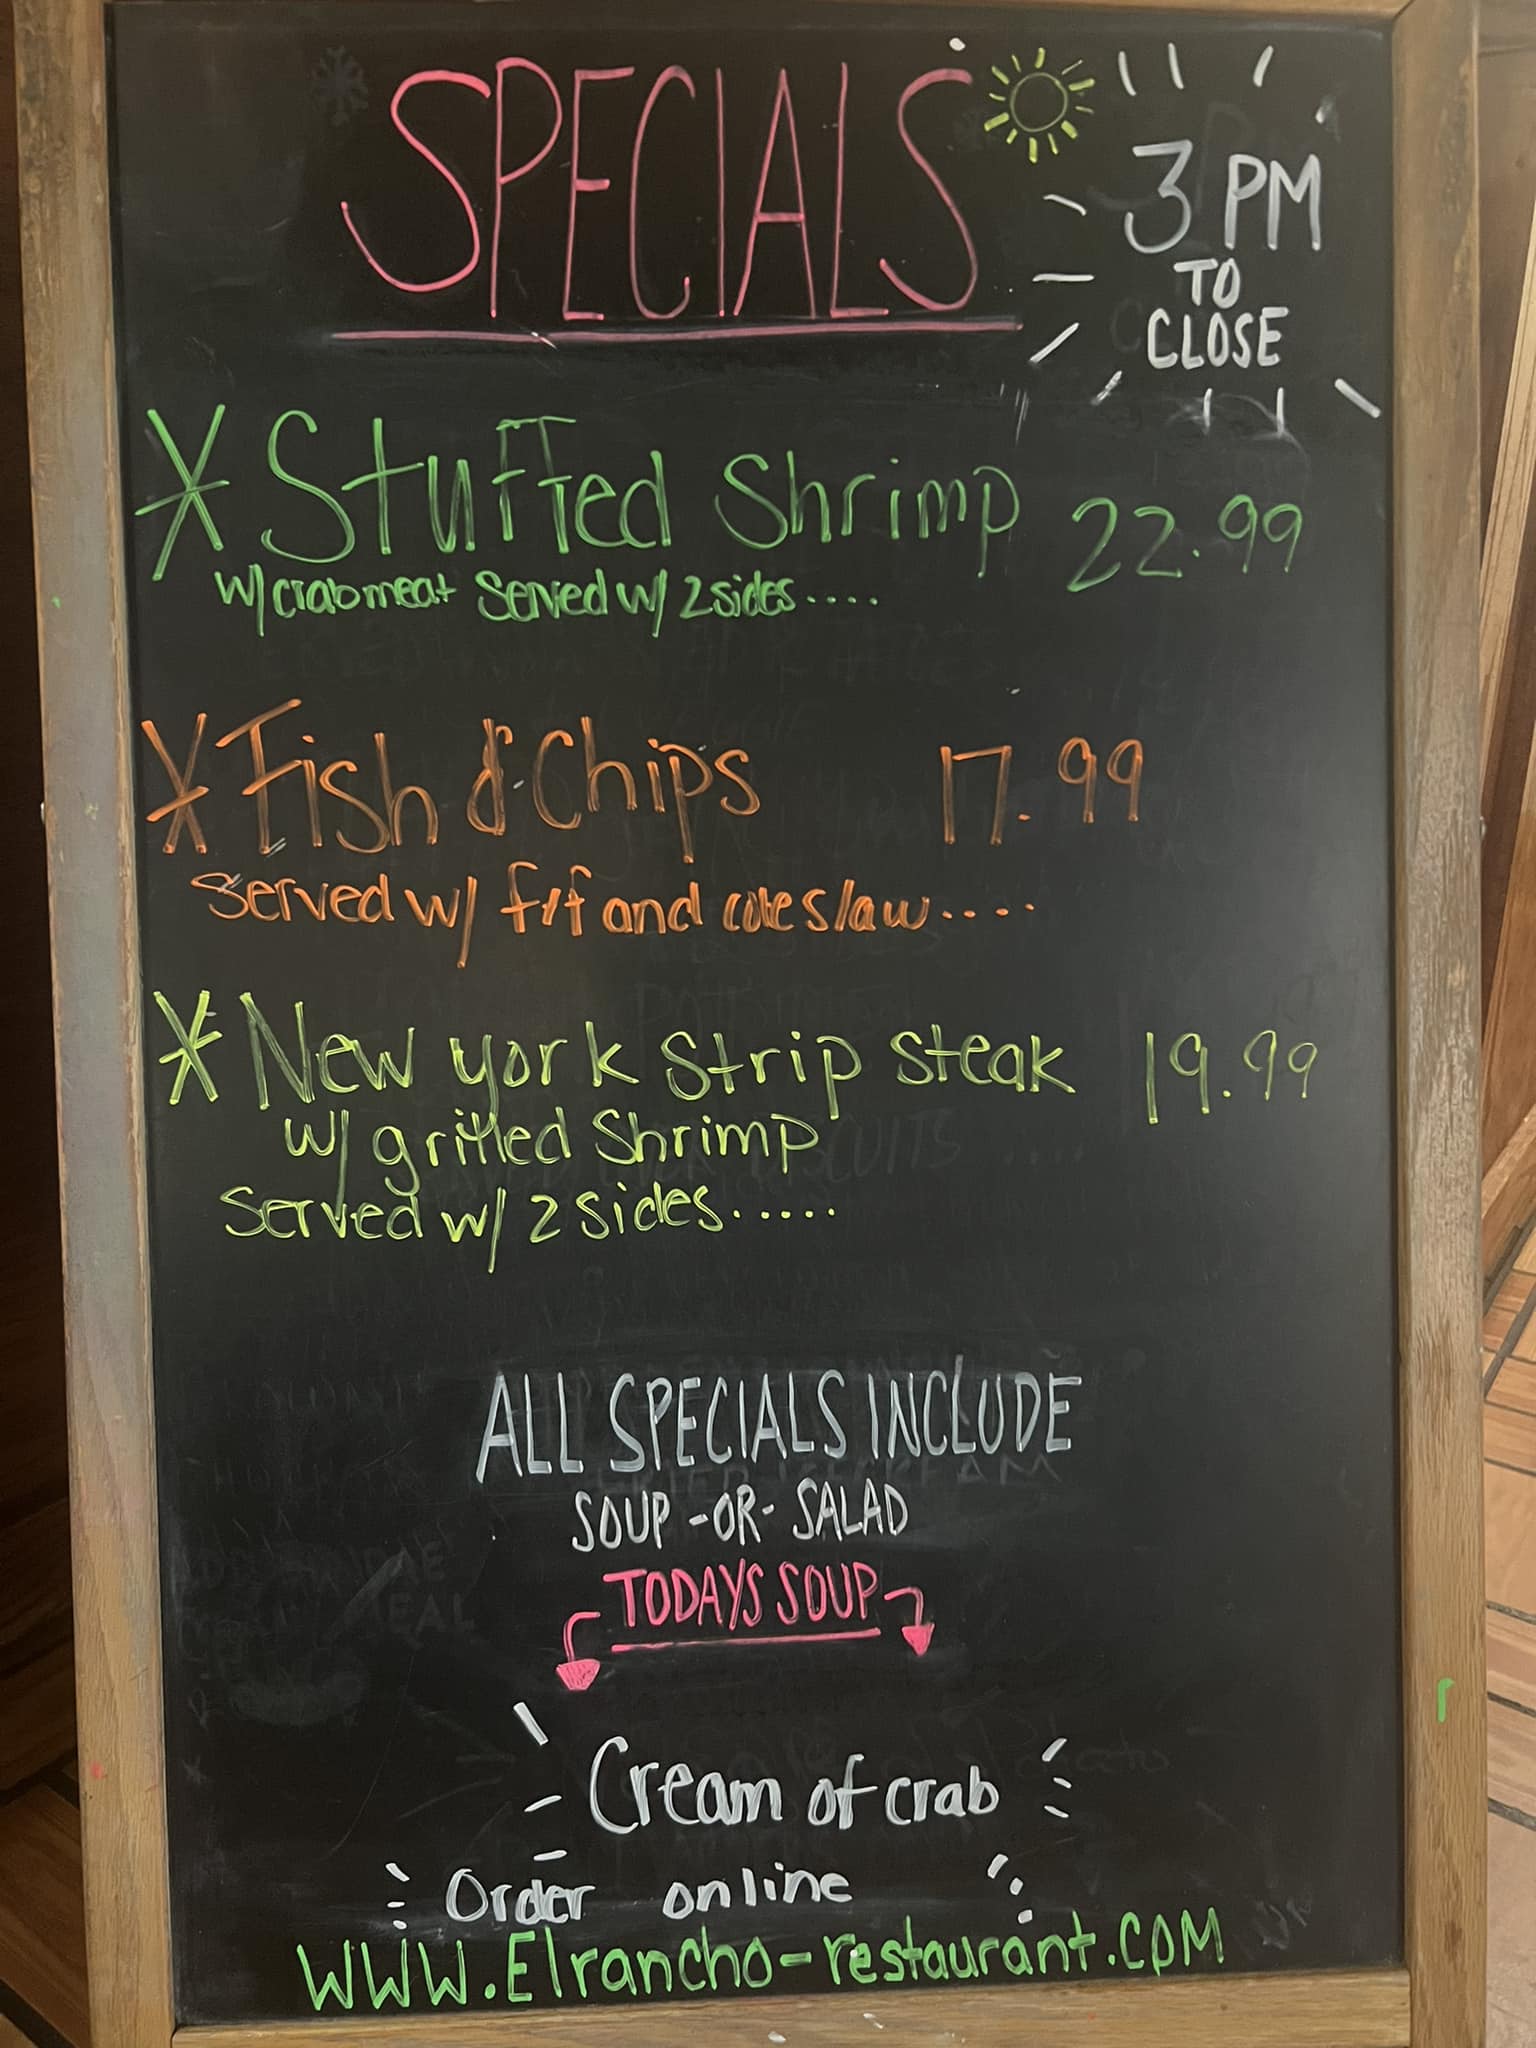 SPECIALS
3 PM
TO
CLOSE
* Stuffed Shrimp 22.99
w/ crabmeat Served w/ 2 sides....
* Fish & Chips 17.99
Served w/ f/f and coleslaw....
* New york Strip Steak 19.99
w/ grilled Shrimp
Served w/ 2 sides.....
ALL SPECIALS INCLUDE
SOUP -OR- SALAD
TODAYS SOUP
Cream of crab
Order online
WWW.Elrancho-restaurant.COM